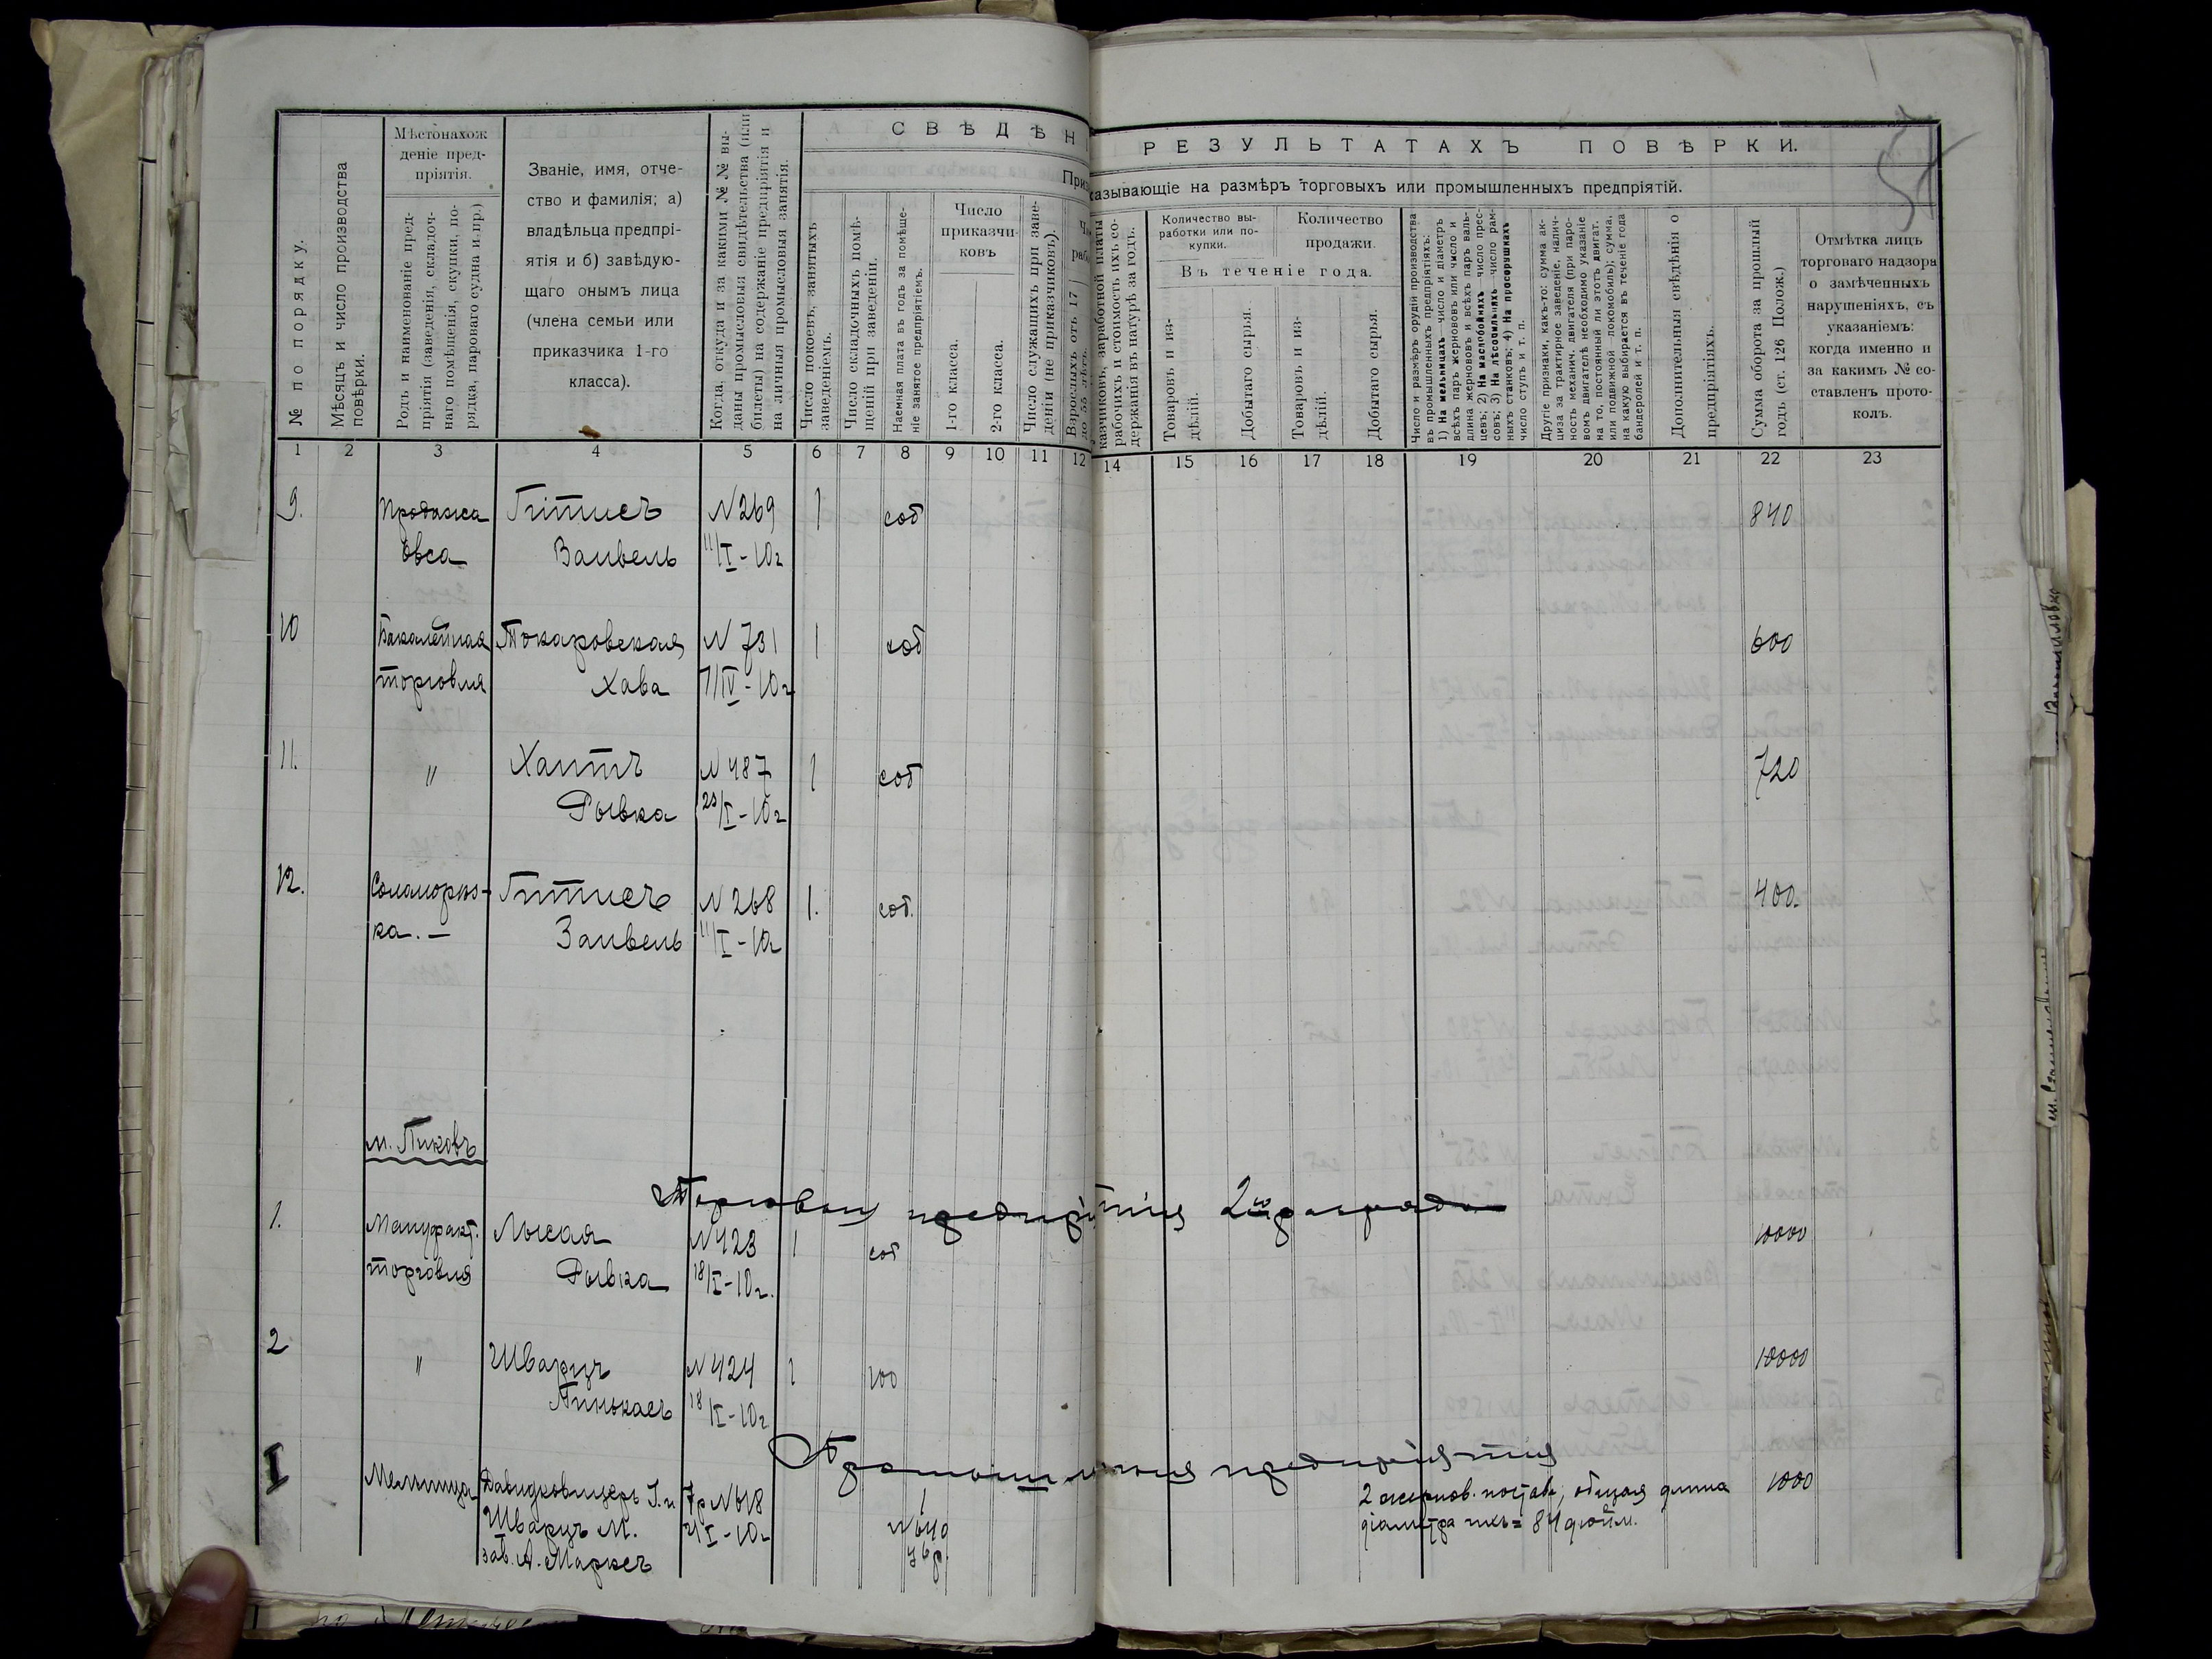 СВѢДѢН
РЕЗУЛЬТАТАХЪ ПОВѢРКИ.
Приз
казывающіе на размѣръ торговыхъ или промышленныхъ предпріятій.
№ по порядку.
Мѣсяцъ и число производства
повѣрки.
Мѣстонахож
деніе пред-
пріятія.
Родъ и наименованіе пред-
пріятія (заведенія, складоч-
наго помѣщенія, скупки, по-
рядка, пароваго судна и пр.)
Званіе, имя, отче-
ство и фамилія; а)
владѣльца предпрі-
ятія и б) завѣдую-
щаго онымъ лица
(члена семьи или
приказчика 1-го
класса).
Когда, откуда и за какими №№ вы-
даны промысловыя свидѣтельства (или
билеты) на содержаніе предпріятія и
на личныя промысловыя занятія.
Число покоевъ, занятыхъ
заведеніемъ.
Число складочныхъ помѣ-
щеній при заведеніи.
Наемная плата въ годъ за помѣще-
ніе занятое предпріятіемъ.
Число
приказчи-
ковъ
1-го класса.
2-го класса.
Число служащихъ при заве-
деніи (не приказчиковъ).
Взрослыхъ отъ 17
до 55 лѣтъ.
казчиковъ, заработной платы
рабочихъ и стоимость ихъ со-
держанія въ натурѣ за годъ.
Количество вы-
работки или по-
купки.
Количество
продажи.
Въ теченіе года.
Товаровъ и из-
дѣлій.
Добытаго сырья.
Товаровъ и из-
дѣлій.
Добытаго сырья.
Число и размѣръ орудій производства
въ промышленныхъ предпріятіяхъ:
1) На мельницахъ число и діаметръ
всѣхъ паръ жернововъ или число и
длина жернововъ и всѣхъ паръ валь-
цевъ; 2) На маслобойняхъ число прес-
совъ; 3) На лѣсопильняхъ число рам-
ныхъ станковъ; 4) На просорушкахъ
число ступъ и т. п.
Другіе признаки, какъ-то: сумма ак-
циза за трактирное заведеніе, налич-
ность механич. двигателя (при паро-
вомъ двигателѣ необходимо указаніе
на то, постоянный ли этотъ двигат.
или подвижной—локомобиль); сумма,
на какую выбирается въ теченіе года
бандеролей и т. п.
Дополнительныя свѣдѣнія о
предпріятіяхъ.
Сумма оборота за прошлый
годъ (ст. 126 Полож.)
Отмѣтка лицъ
торговаго надзора
о замѣченныхъ
нарушеніяхъ, съ
указаніемъ:
когда именно и
за какимъ № со-
ставленъ прото-
колъ.
1 2 3 4 5 6 7 8 9 10 11 12 14 15 16 17 18 19 20 21 22 23
9. Продажа Гитисъ N 269 1 соб 840
овса Зайвель 11/I-10г
10 Бакалейная Токаровская N 731 1 соб 600
торговля Хава 7/IV-10г
11. " Хаитъ N 487 1 соб 720
Рывка 23/I-10г
12. Гитисъ N 268 1. соб. 400.
ка.— Зайвель 11/I-10г
м. Пиковъ
Торговыя предпріятія 2го разряда
1. Мануфакт. Лысая N 423 1 соб 10000
торговля Рывка 18/I-10г.
2 " Шварцъ N 424 1 100 10000
Пинькасъ 18/I-10г
Промышленныя предпріятія
I Мельница Давидковицеръ I. и 7р N 618 1 2 жернов. постава; общая длина 1000
Шварцъ М. I-10г N 640 діаметра ихъ = 84 дюйм.
зав. А. Марксъ 7 бр.